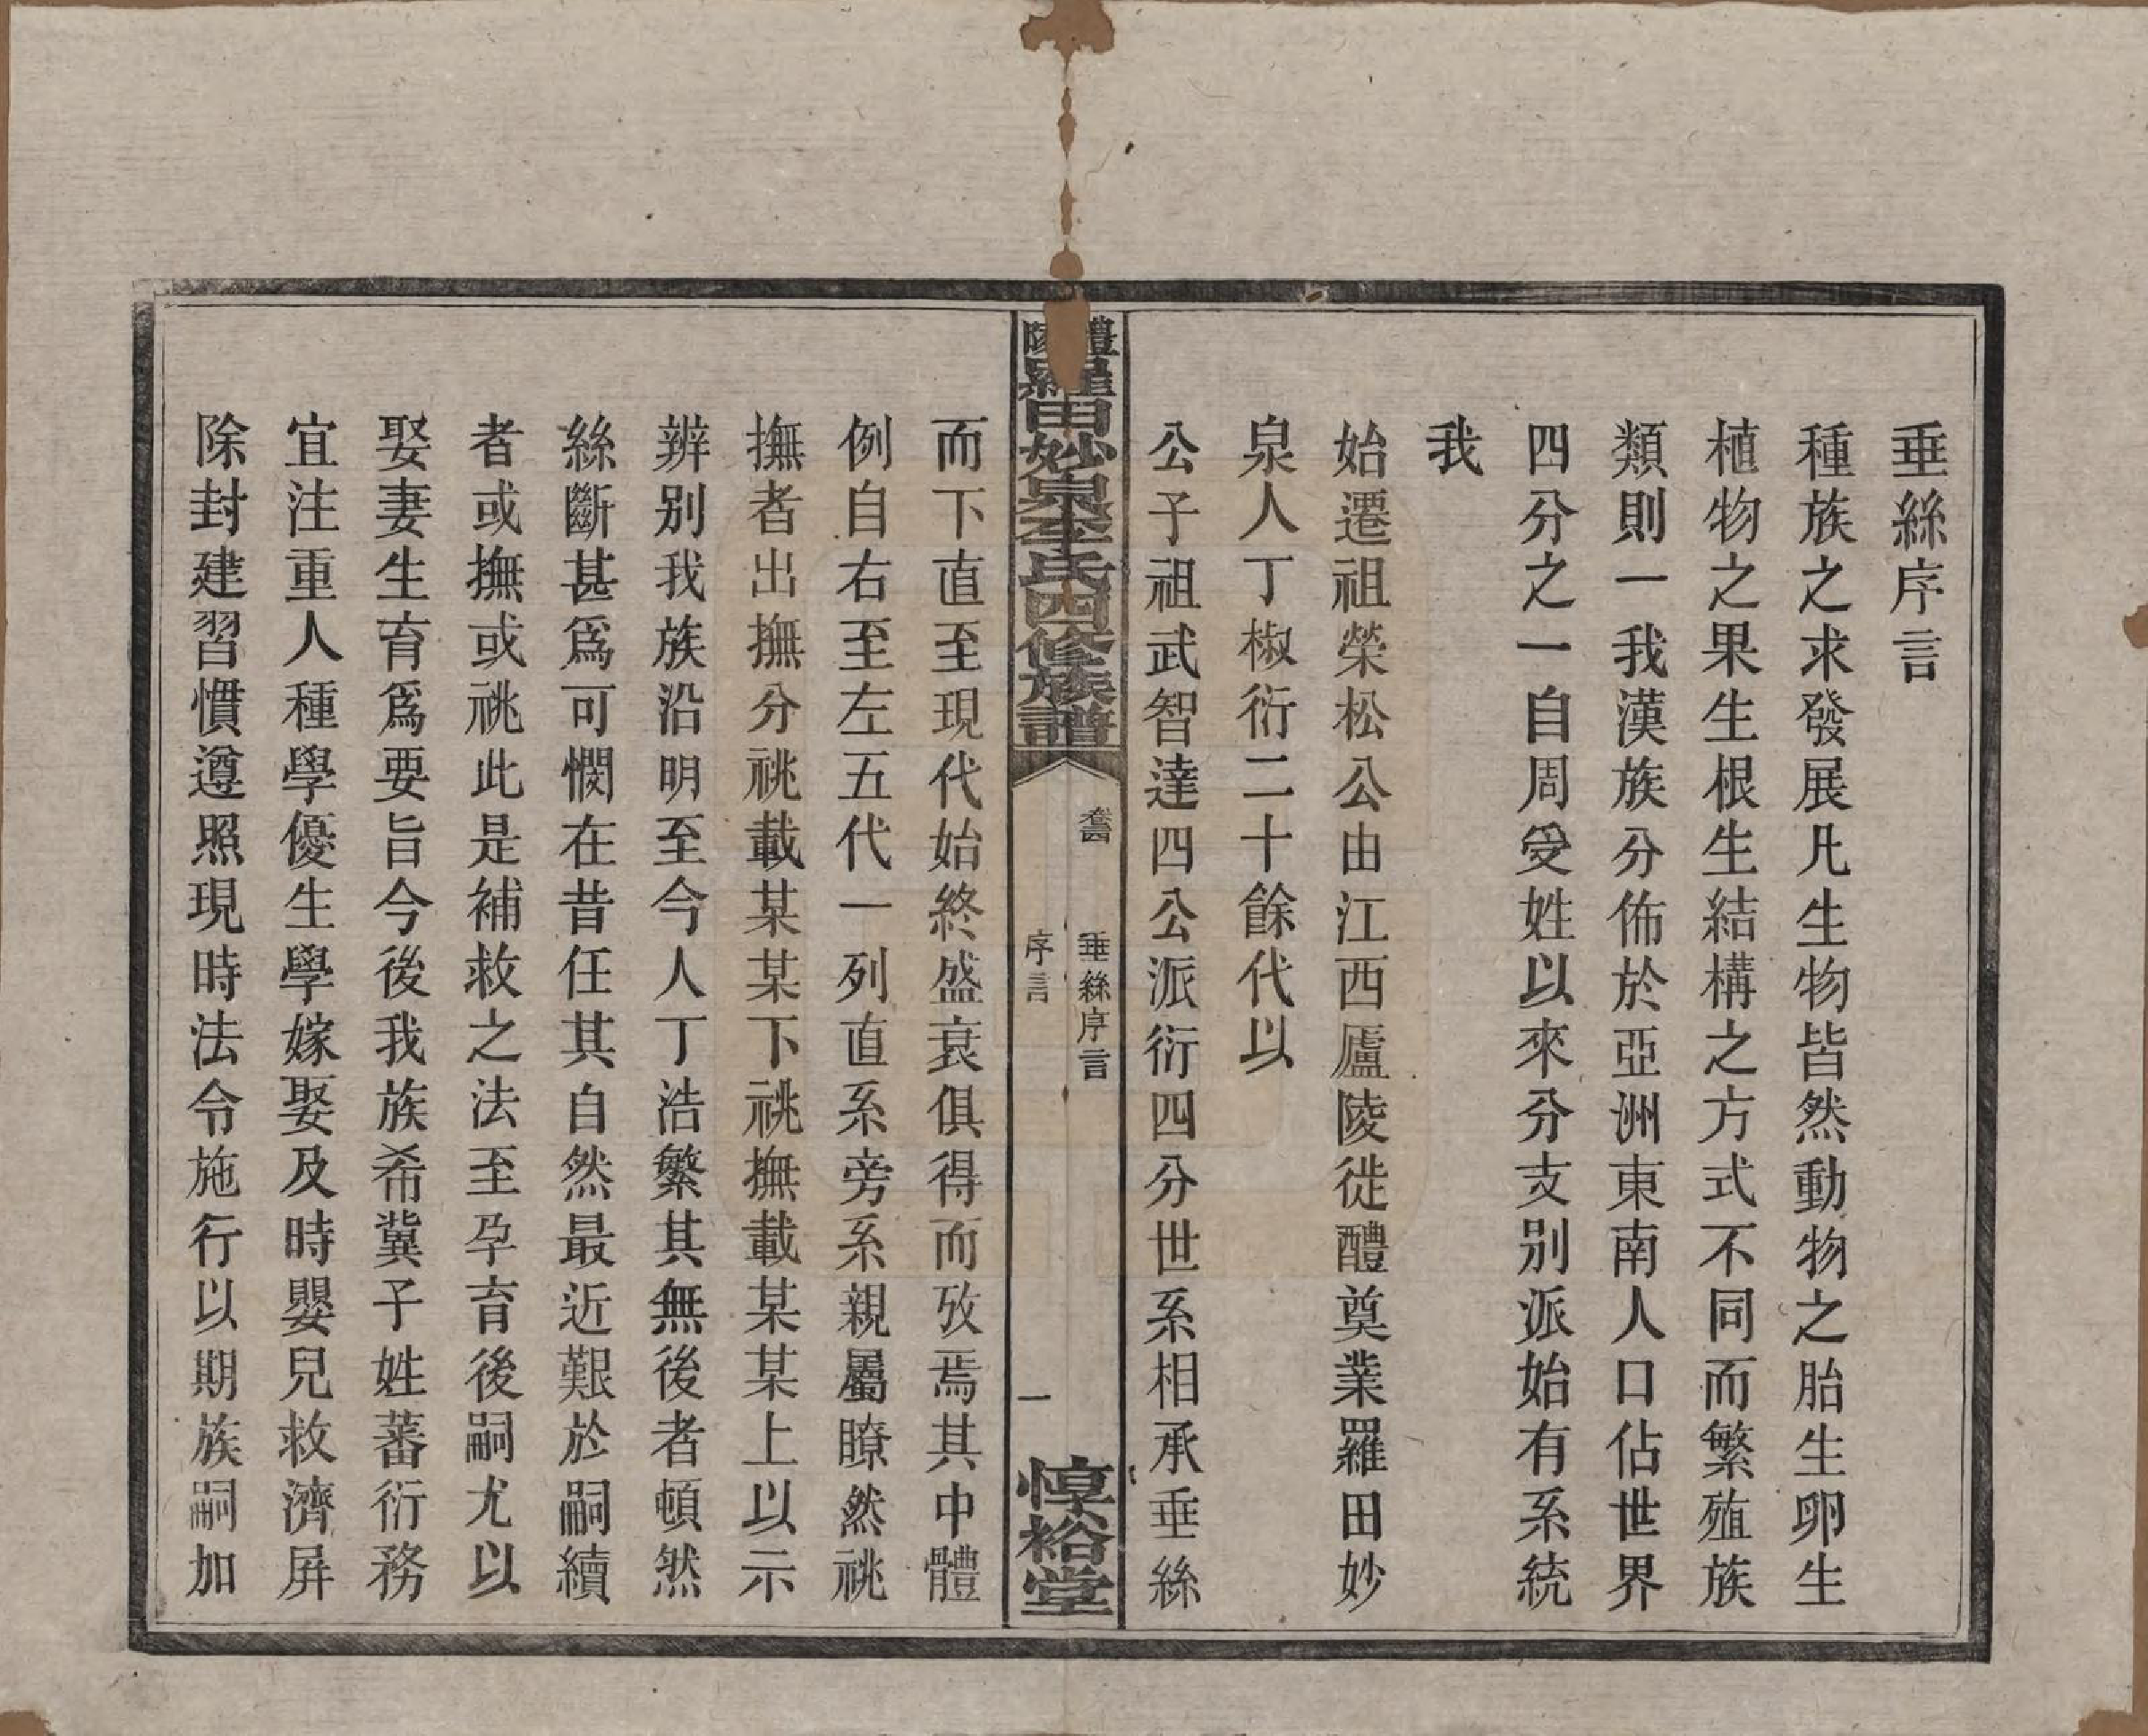 垂絲序言
種族之求發展凡生物皆然動物之胎生卵生
植物之果生根生結構之方式不同而繁殖族
類則一我漢族分佈於亞洲東南人口佔世界
四分之一自周受姓以來分支別派始有系統
我
始遷祖榮松公由江西廬陵徙醴奠業羅田妙
泉人丁椒衍二十餘代以
公子祖武智達四公派衍四分世系相承垂絲
醴陵羅田妙泉李氏四修族譜
卷四
垂絲序言
序言
一
惇裕堂
而下直至現代始終盛衰俱得而攷焉其中體
例自右至左五代一列直系旁系親屬瞭然祧
撫者出撫分祧載某某下祧撫載某某上以示
辨別我族沿明至今人丁浩繁其無後者頓然
絲斷甚爲可憫在昔任其自然最近艱於嗣續
者或撫或祧此是補救之法至孕育後嗣尤以
娶妻生育爲要旨今後我族希冀子姓蕃衍務
宜注重人種學優生學嫁娶及時嬰兒救濟屏
除封建習慣遵照現時法令施行以期族嗣加